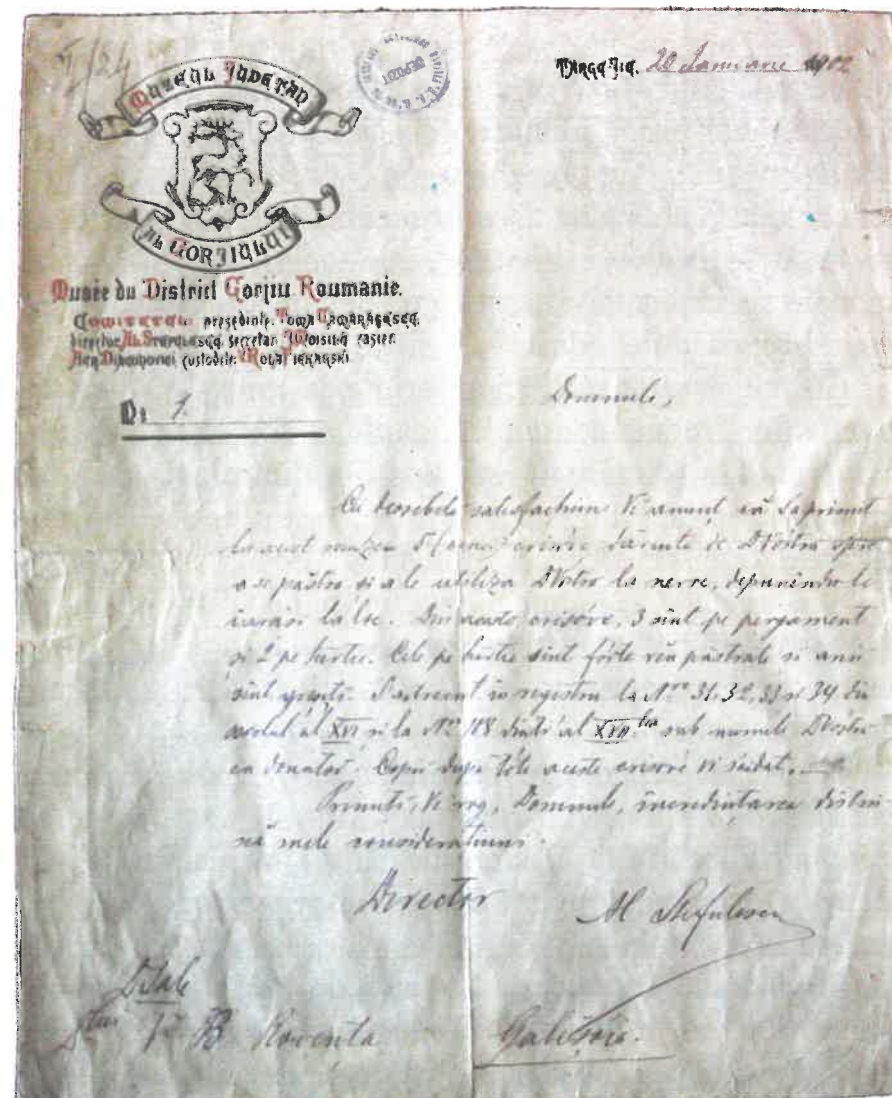 I/24
MUZEUL JUDEȚAN
AL GORJIULUI
TÂRGU JIU. 20 Ianuarie 1902
Musée du District Gorjiu Roumanie.
Comitetul președinte: Toma Cămărășescu,
director Al. Ștefulescu, secretar casier.
custodele:
No 1
Domnule,
Cu deosebită satisfacțiune Vĕ anunț că s'a primit
la acest muzeu 5 (cinci) crisóve dăruite de DVóstră spre
a se păstra si a le utiliza DVóstră la nevoe, depunĕndu-le
iarăsi la loc. Din aceste crisóve, 3 sînt pe pergament
si 2 pe hârtie. Cele pe hârtie sînt fórte rĕu păstrate si anii
sînt greșiți. S'au trecut in registru la No 31, 32, 33 si 34 din
secolul al XVI si la No 118 dintr'al XVII lea sub numele DVóstră
ca donator. Copii dupa tóte aceste crisóve vi s'aŭ dat.
Primiti, Vĕ rog, Domnule, incredintarea distin
sei mele consideratiuni.
Director
Al Ștefulescu
D Sale
Dlui B Roventa
Galeșoia.